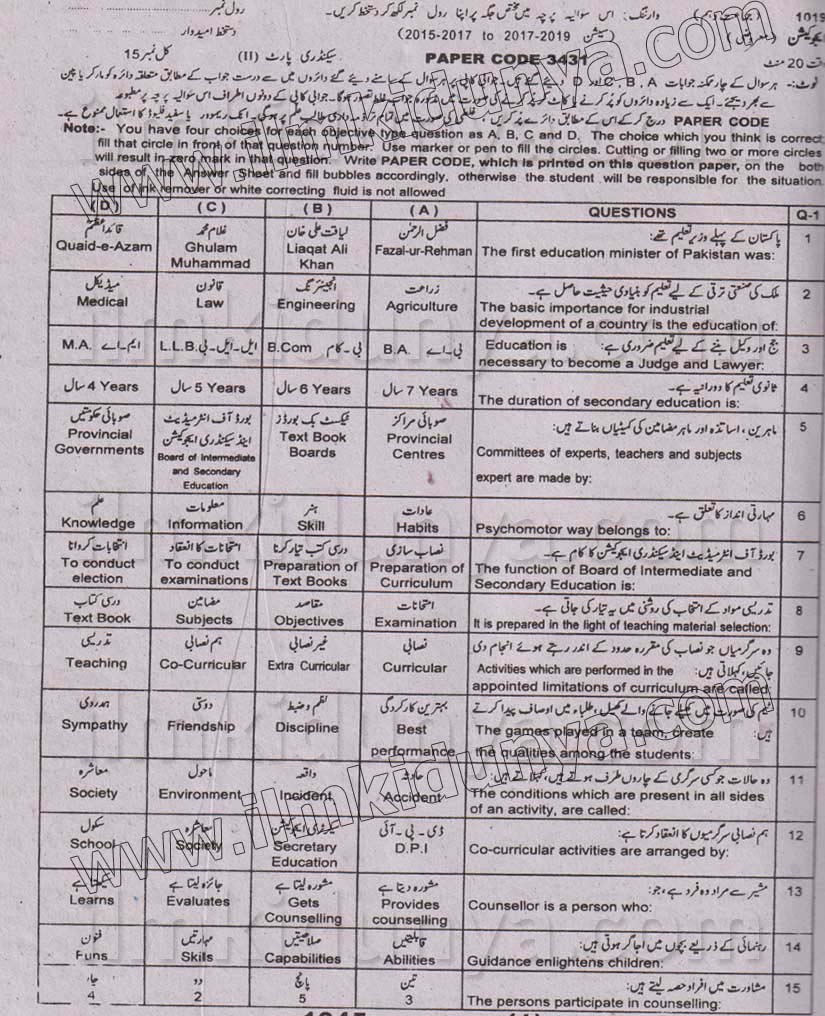 1019 وارننگ: اس سوالیہ پرچہ میں مختص جگہ پر اپنا رول نمبر لکھ کر دستخط کریں۔ رول نمبر
ایجوکیشن سیشن (2015-2017 to 2017-2019) دستخط امیدوار
PAPER CODE 3431 سیکنڈری پارٹ (II) کل نمبر 15
وقت 20 منٹ
نوٹ:- ہر سوال کے چار ممکنہ جوابات A، B، C اور D دیئے گئے ہیں۔ جوابی کاپی پر ہر سوال کے سامنے دیئے گئے دائروں میں سے درست جواب کے مطابق متعلقہ دائرہ کو مارکر یا پین
سے بھر دیجئے۔ ایک سے زیادہ دائروں کو پُر کرنے یا کاٹ کر پُر کرنے کی صورت میں مذکورہ جواب غلط تصور ہوگا۔ جوابی کاپی کے دونوں اطراف اس سوالیہ پرچہ پر مطبوعہ
PAPER CODE درج کر کے اس کے مطابق دائرے پُر کریں، غلطی کی صورت میں تمام تر ذمہ داری طالب علم پر ہوگی۔ انک ریموور یا سفید فلیوڈ کا استعمال ممنوع ہے۔
Note:- You have four choices for each objective type question as A, B, C and D. The choice which you think is correct
fill that circle in front of that question number. Use marker or pen to fill the circles. Cutting or filling two or more circles
will result in zero mark in that question. Write PAPER CODE, which is printed on this question paper, on the both
sides of the Answer Sheet and fill bubbles accordingly, otherwise the student will be responsible for the situation.
Use of ink remover or white correcting fluid is not allowed
(D) (C) (B) (A) QUESTIONS Q-1
قائداعظم غلام محمد لیاقت علی خان فضل الرحمٰن پاکستان کے پہلے وزیر تعلیم تھے: 1
Quaid-e-Azam Ghulam Muhammad Liaqat Ali Khan Fazal-ur-Rehman The first education minister of Pakistan was:
میڈیکل قانون انجینئرنگ زراعت ملک کی صنعتی ترقی کے لیے تعلیم کو بنیادی حیثیت حاصل ہے۔ 2
Medical Law Engineering Agriculture The basic importance for industrial
development of a country is the education of:
M.A. ایم۔اے L.L.B. ایل۔ایل۔بی B.Com بی۔کام B.A. بی۔اے Education is جج اور وکیل بننے کے لیے تعلیم ضروری ہے: 3
necessary to become a Judge and Lawyer:
4 Years سال 5 Years سال 6 Years سال 7 Years سال ثانوی تعلیم کا دورانیہ ہے۔ 4
The duration of secondary education is:
صوبائی حکومتیں بورڈ آف انٹرمیڈیٹ اینڈ سیکنڈری ایجوکیشن ٹیکسٹ بک بورڈز صوبائی مراکز ماہرین، اساتذہ اور ماہر مضامین کی کمیٹیاں بناتے ہیں: 5
Provincial Governments Board of Intermediate and Secondary Education Text Book Boards Provincial Centres Committees of experts, teachers and subjects
expert are made by:
علم معلومات ہنر عادات مہارتی انداز کا تعلق ہے۔ 6
Knowledge Information Skill Habits Psychomotor way belongs to:
انتخابات کروانا امتحانات کا انعقاد درسی کتب تیار کرنا نصاب سازی بورڈ آف انٹرمیڈیٹ اینڈ سیکنڈری ایجوکیشن کا کام ہے۔ 7
To conduct election To conduct examinations Preparation of Text Books Preparation of Curriculum The function of Board of Intermediate and
Secondary Education is:
درسی کتاب مضامین مقاصد امتحانات تدریسی مواد کے انتخاب کی روشنی میں یہ تیار کی جاتی ہے۔ 8
Text Book Subjects Objectives Examination It is prepared in the light of teaching material selection:
تدریسی ہم نصابی غیر نصابی نصابی وہ سرگرمیاں جو نصاب کی مقررہ حدود کے اندر رہتے ہوئے انجام دی 9
Teaching Co-Curricular Extra Curricular Curricular جائیں، کہلاتی ہیں: Activities which are performed in the
appointed limitations of curriculum are called
ہمدردی دوستی نظم و ضبط بہترین کارکردگی ٹیم کی صورت میں کھیلے جانے والے کھیل، طلباء میں اوصاف پیدا کرتے 10
Sympathy Friendship Discipline Best performance ہیں: The games played in a team, create
the qualities among the students:
معاشرہ ماحول واقعہ حادثہ وہ حالات جو کسی سرگرمی کے چاروں طرف ہوتے ہیں، کہلاتے ہیں: 11
Society Environment Incident Accident The conditions which are present in all sides
of an activity, are called:
سکول معاشرہ سیکرٹری ایجوکیشن ڈی۔پی۔آئی ہم نصابی سرگرمیوں کا انعقاد کرتا ہے: 12
School Society Secretary Education D.P.I Co-curricular activities are arranged by:
سیکھتا ہے جائزہ لیتا ہے مشورہ لیتا ہے مشورہ دیتا ہے مشیر سے مراد وہ فرد ہے، جو: 13
Learns Evaluates Gets Counselling Provides counselling Counsellor is a person who:
فنون مہارتیں صلاحیتیں قابلیتیں رہنمائی کے ذریعے بچوں میں اجاگر ہوتی ہیں: 14
Funs Skills Capabilities Abilities Guidance enlightens children:
چار دو پانچ تین مشاورت میں افراد حصہ لیتے ہیں: 15
4 2 5 3 The persons participate in counselling:
www.ilmkidunya.com